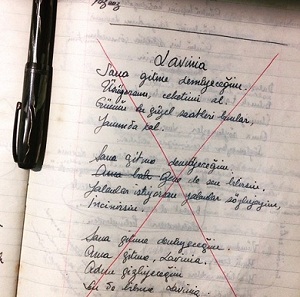 Lavinia
Sana gitme demiyeceğim.
Üşüyorsun, ceketimi al.
Günün en güzel saatleri bunlar,
Yanımda kal.
Sana gitme demiyeceğim.
Gene de sen bilirsin.
Yalanlar istiyorsan yalanlar söyliyeyim,
İncinirsin.
Sana gitme demiyeceğim.
Ama gitme, Lavinia.
Adını gizliyeceğim
Sen de bilme Lavinia.